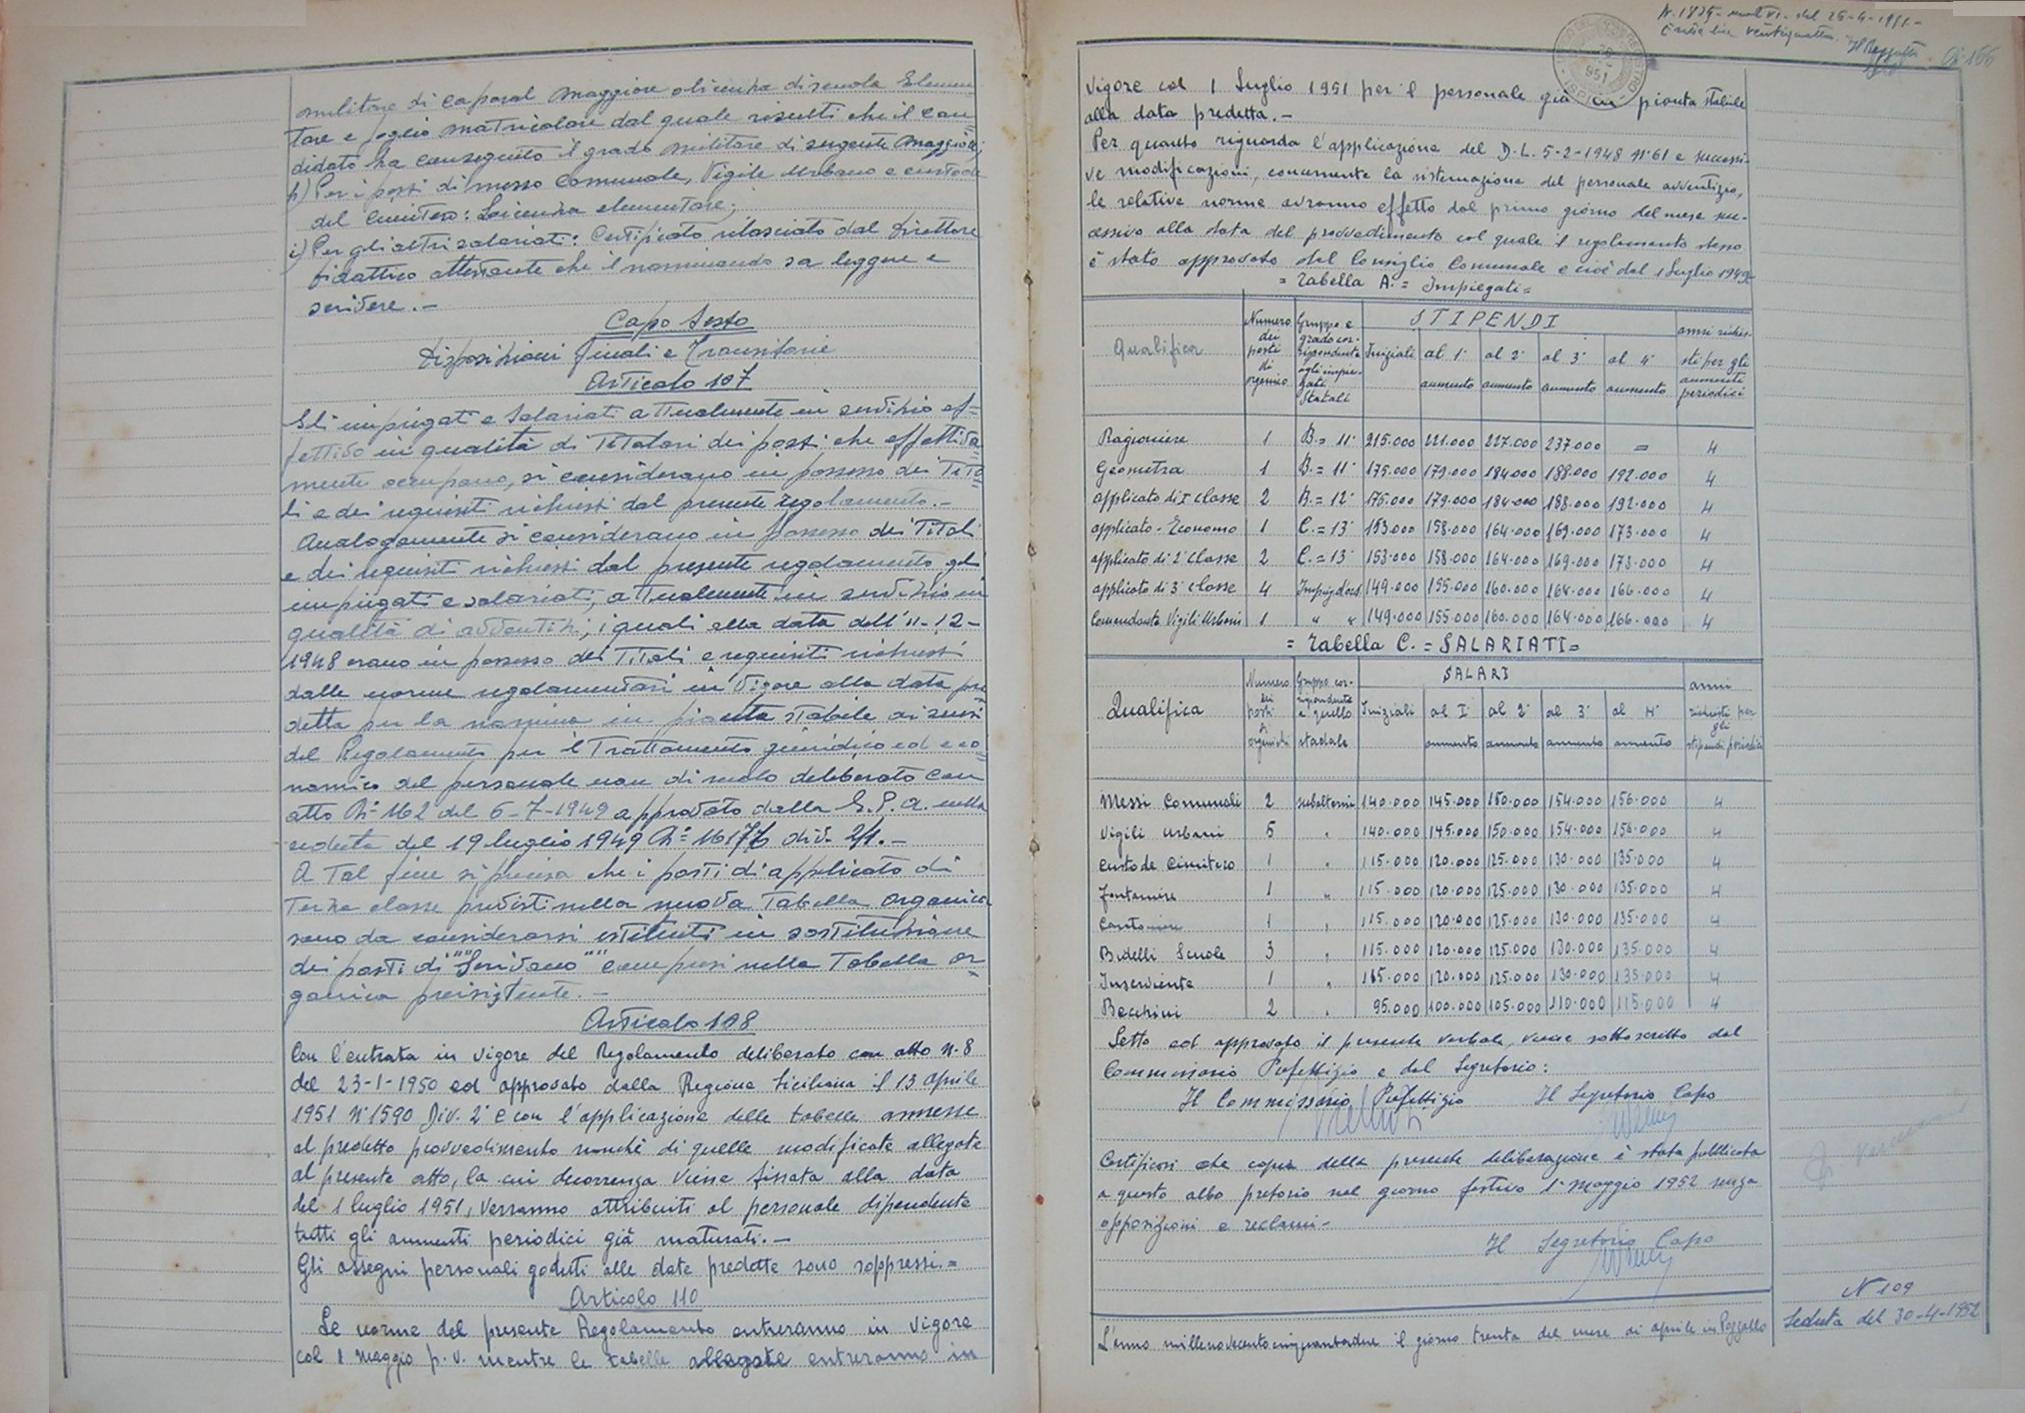 militare di caporal maggiore o licenza di scuola Elemen
tare e foglio matricolare dal quale risulti che il can=
didato ha conseguito il grado militare di sergente maggiore;
h) Per i posti di messo Comunale, Vigile Urbano e custode
del Cimitero: Licenza elementare;
i) Per gli altri salariati: Certificato rilasciato dal Direttore
Didattico attestante che il nominando sa leggere e
scrivere.-
Capo Sesto
Disposizioni Finali e Transitorie
Articolo 107
Gli impiegati e Salariati attualmente in servizio ef=
fettivo in qualità di Titolari dei posti che effettiva
mente occupano, si considerano in possesso dei Tito=
li e dei requisiti richiesti dal presente regolamento.-
Analogamente si considerano in possesso dei Titoli
e dei requisiti richiesti dal presente regolamento gli
impiegati e salariati, attualmente in servizio in
qualità di avventizi, i quali alla data dell'11-12-
1948 erano in possesso dei Titoli e requisiti richiesti
dalle norme regolamentari in Vigore alla data pre
detta per la nomina in pianta stabile ai sensi
del Regolamento per il Trattamento giuridico ed eco=
nomico del personale non di ruolo deliberato con
atto N° 162 del 6-7-1949 approvato dalla G.P.A. nella
seduta del 19 luglio 1949 N° 16176 div. 2/1.-
A Tal fine si precisa che i posti di applicato di
Terza classe previsti nella nuova Tabella organica
sono da considerarsi istituiti in sostituzione
dei posti di "Scrivano" compresi nella Tabella or=
ganica preesistente.-
Articolo 108
Con l'entrata in vigore del Regolamento deliberato con atto N. 8
del 23-1-1950 ed approvato dalla Regione Siciliana il 13 aprile
1951 N° 1590 Div. 2° e con l'applicazione delle tabelle annesse
al predetto provvedimento nonché di quelle modificate allegate
al presente atto, la cui decorrenza viene fissata alla data
del 1 luglio 1951, verranno attribuiti al personale dipendente
tutti gli aumenti periodici già maturati.-
Gli assegni personali goduti alle date predette sono soppressi.=
Articolo 110
Le norme del presente Regolamento entreranno in vigore
col 1 maggio p.v. mentre le tabelle allegate entreranno in
del 26-4-1951-
951
vigore col 1 Luglio 1951 per il personale già in pianta stabile
alla data predetta.-
Per quanto riguarda l'applicazione del D.L. 5-2-1948 N°61 e successi-
ve modificazioni, concernente la sistemazione del personale avventizio,
le relative norme avranno effetto dal primo giorno del mese suc-
cessivo alla data del provvedimento col quale il regolamento stesso
è stato approvato dal Consiglio Comunale e cioè dal 1 Luglio 1949
= Tabella A. = Impiegati =
Qualifica | Numero dei posti di organico | Gruppo e grado corrispondente agli impiegati Statali | STIPENDI | anni richiesti per gli aumenti periodici
Iniziali | al 1° aumento | al 2° aumento | al 3° aumento | al 4° aumento
Ragioniere 1 B.= 11° 215.000 221.000 227.000 237.000 = 4
Geometra 1 B.= 11° 175.000 179.000 184.000 188.000 192.000 4
applicato di I° classe 2 B.= 12° 175.000 179.000 184.000 188.000 192.000 4
applicato - Economo 1 C.= 13° 153.000 158.000 164.000 169.000 173.000 4
applicato di 2° classe 2 C.= 13° 153.000 158.000 164.000 169.000 173.000 4
applicato di 3° classe 4 149.000 155.000 160.000 164.000 166.000 4
Comandante Vigili Urbani 1 " " 149.000 155.000 160.000 164.000 166.000 4
= Tabella C. = SALARIATI =
Qualifica | Numero dei posti di organico | Gruppo corrispondente a quello statale | SALARI | anni richiesti per gli stipendi periodici
Iniziali | al I° aumento | al 2° aumento | al 3° aumento | al 4° aumento
Messi Comunali 2 subalterni 140.000 145.000 150.000 154.000 156.000 4
Vigili Urbani 5 " 140.000 145.000 150.000 154.000 156.000 4
Custode Cimitero 1 " 115.000 120.000 125.000 130.000 135.000 4
Fontaniere 1 " 115.000 120.000 125.000 130.000 135.000 4
Cantoniere 1 " 115.000 120.000 125.000 130.000 135.000 4
Bidelli Scuole 3 " 115.000 120.000 125.000 130.000 135.000 4
Inserviente 1 " 115.000 120.000 125.000 130.000 135.000 4
Becchini 2 " 95.000 100.000 105.000 110.000 115.000 4
Letto ed approvato il presente verbale, viene sottoscritto dal
Commissario Prefettizio e dal Segretario:
Il Commissario Prefettizio Il Segretario Capo
Certificasi che copia della presente deliberazione è stata pubblicata
a questo albo pretorio nel giorno festivo 1° maggio 1952 senza
opposizioni e reclami-
Il Segretario Capo
N 109
Seduta del 30-4-1952
L'anno millenovecentocinquantadue il giorno trenta del mese di aprile in Pozzallo